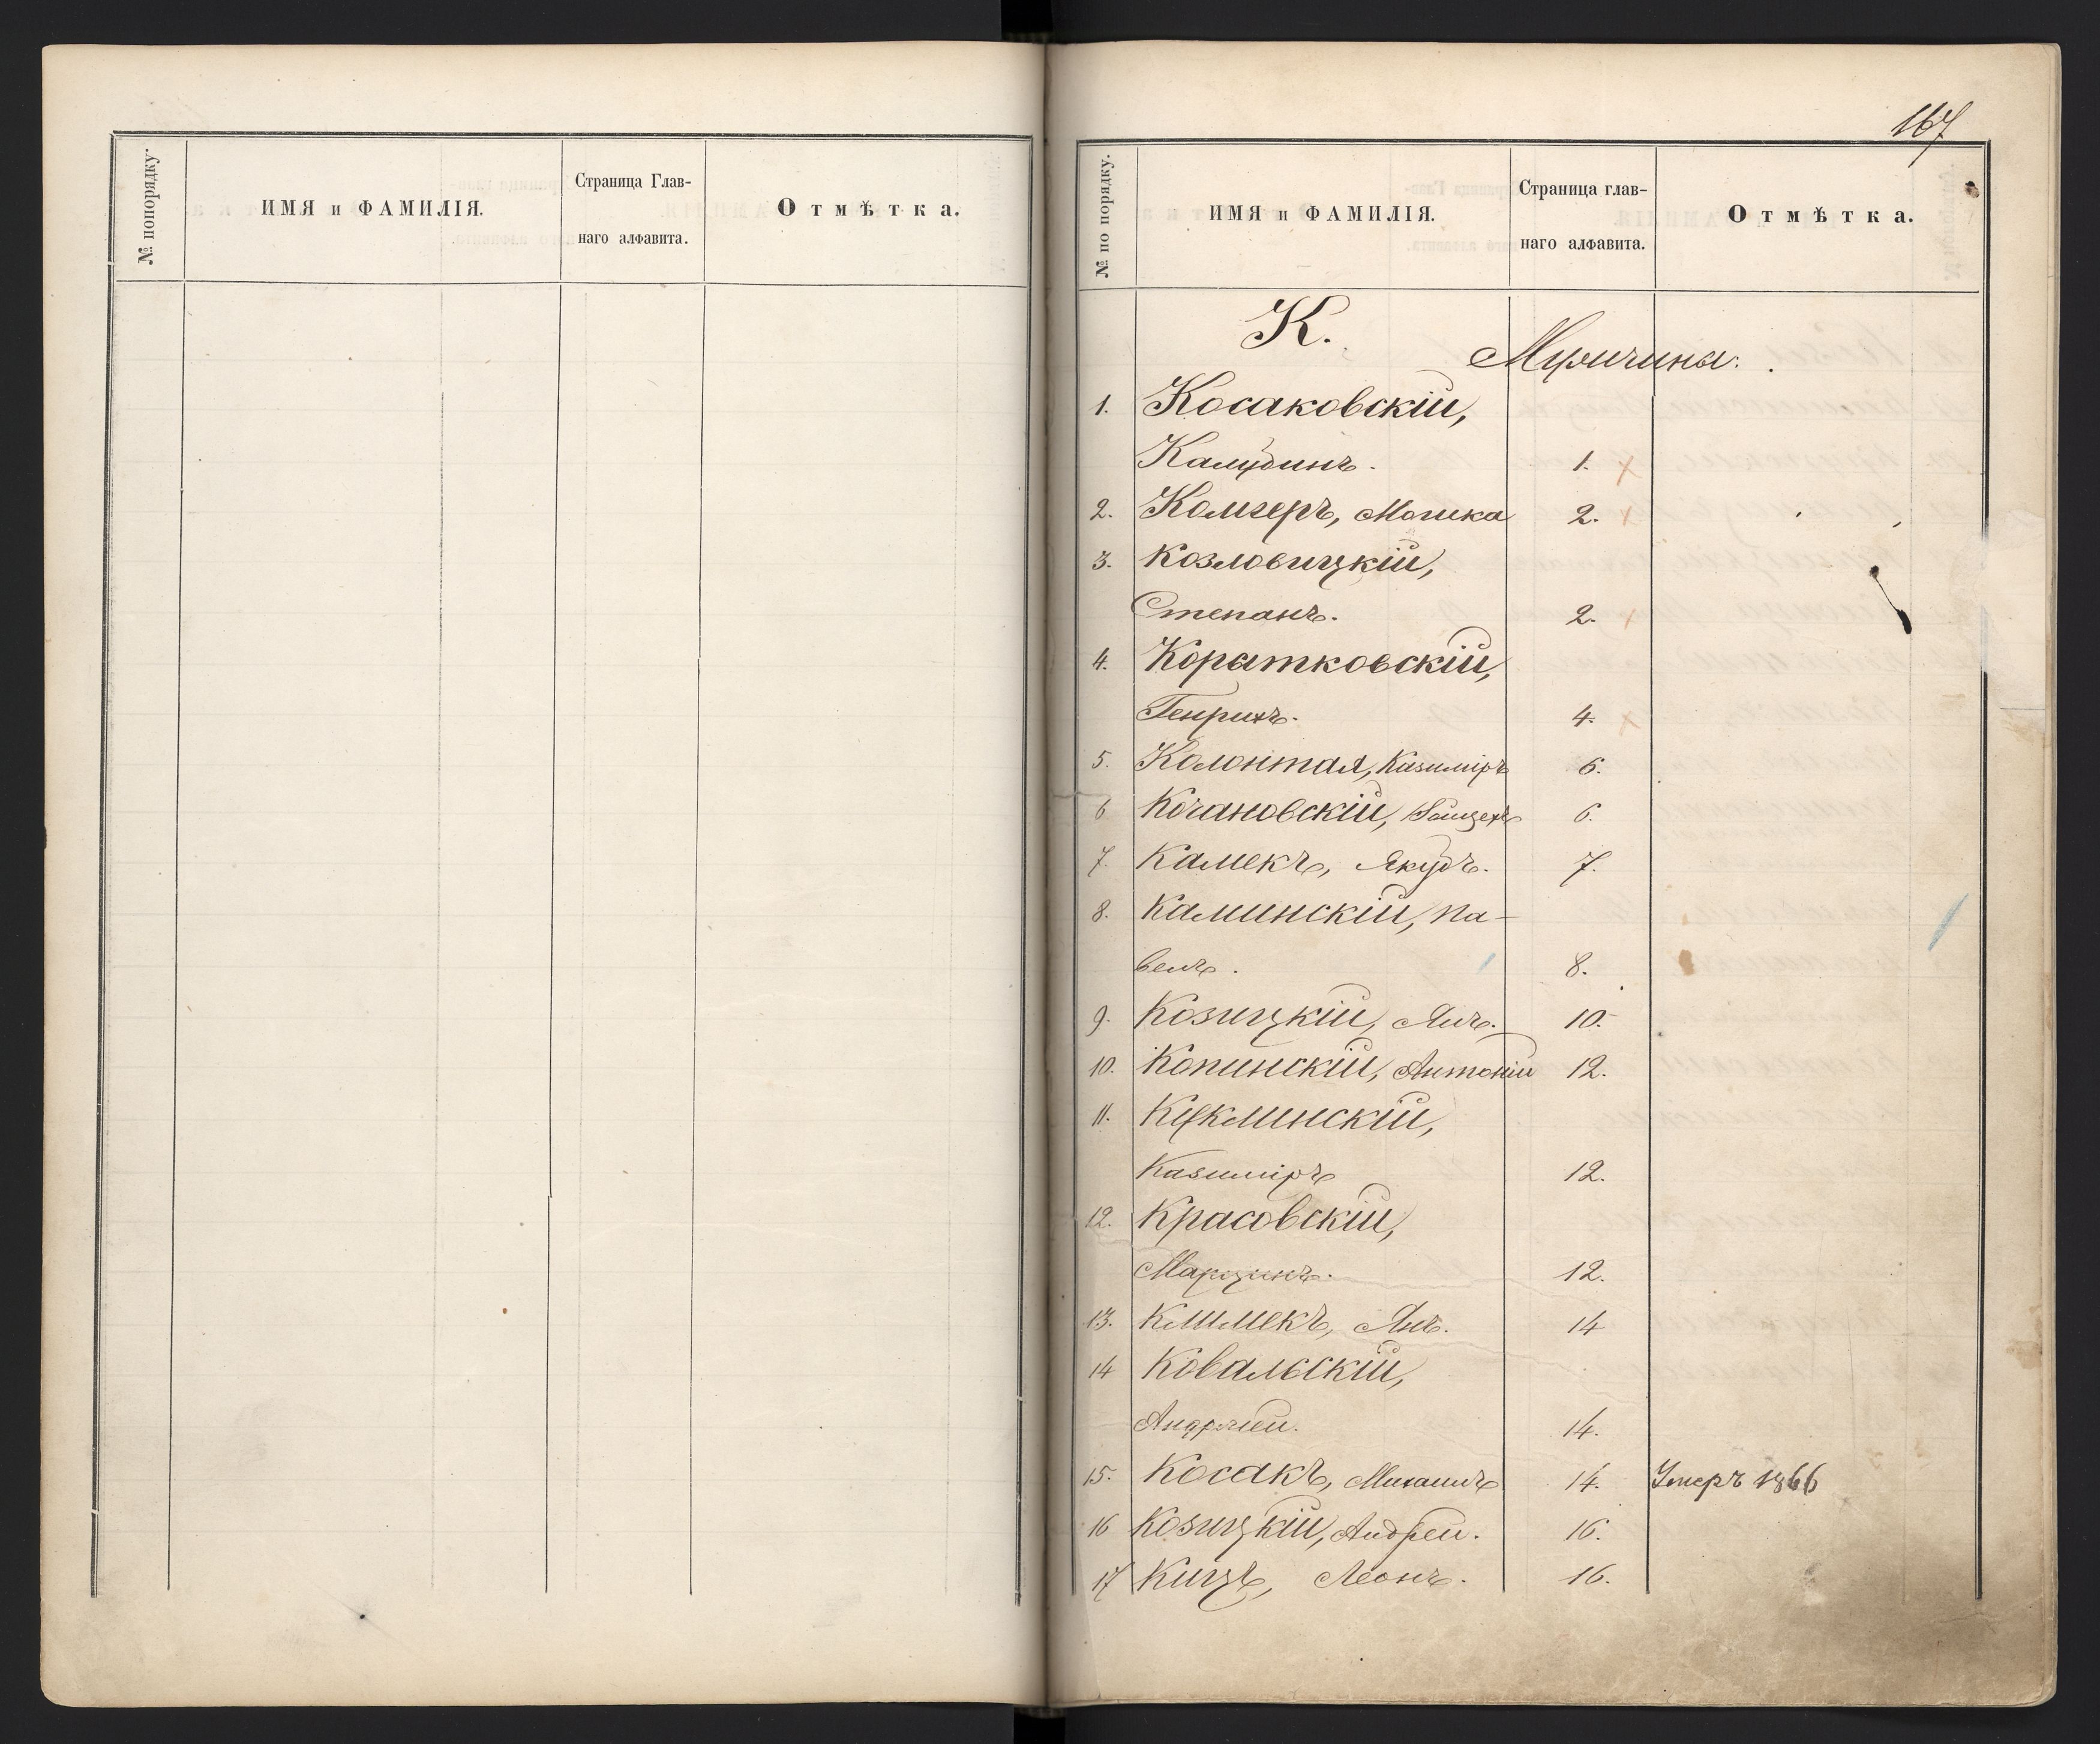 № попорядку.
ИМЯ и ФАМИЛІЯ.
Страница Глав-
наго алфавита.
Отмѣтка.
167
№ по порядку.
ИМЯ и ФАМИЛІЯ.
Страница глав-
наго алфавита.
Отмѣтка.
К.
Мущина.
1. Косаковскій,
1.
2. Мошка 2.
3. Козловицкій,
Степанъ. 2.
4. Коратковскій,
Генрихъ. 4.
5. Колонтая, Казиміръ 6.
6 Кочановскій, Войцехъ 6.
7. Камекъ, Якубъ. 7.
8. Калинскій, Па-
велъ. 8.
9. Козицкій, Янъ. 10.
10. Копинскій, Антоній 12.
11. Куклинскій,
Казиміръ 12.
12. Красовскій,
Марцинъ. 12.
13. Климекъ, Янъ. 14
14 Ковальскій,
Андрей. 14.
15. Косакъ, Михаилъ 14. Умеръ 1866
16 Козицкій, Андрей. 16.
17 Кицъ, Леонъ. 16.